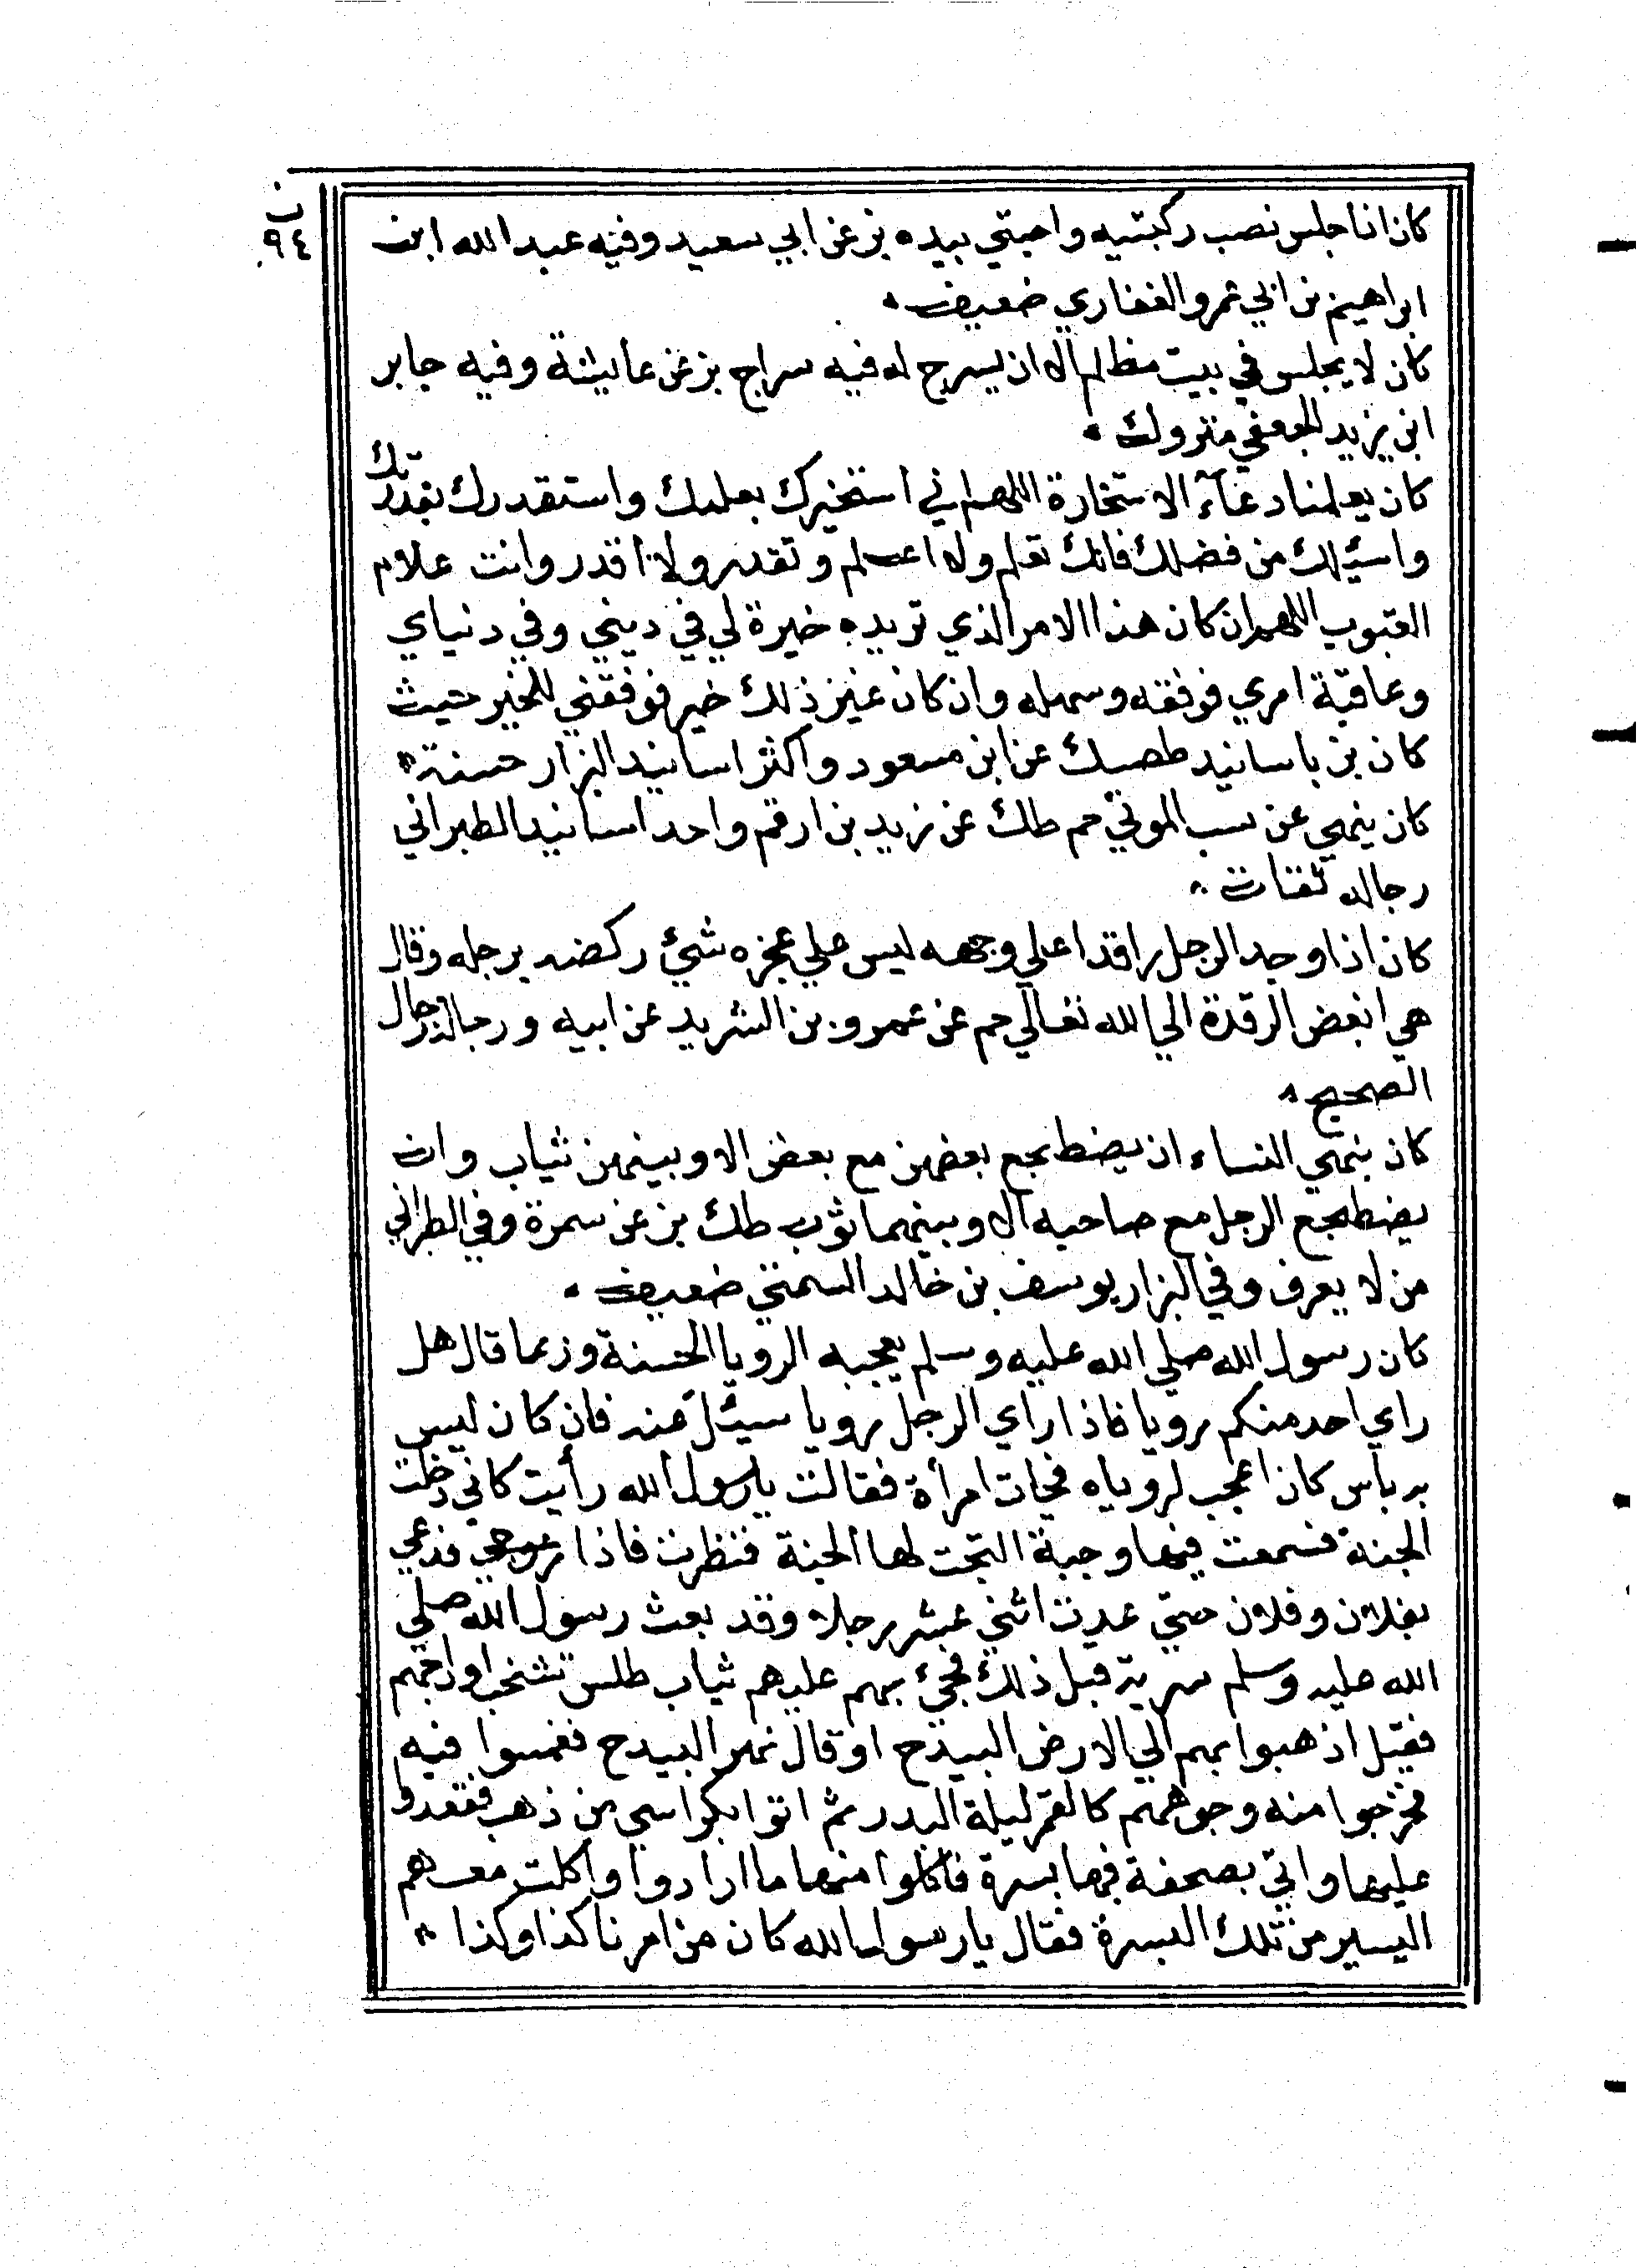 ب ٩٤
كان اذا جلس نصب ركبتيه واحتبي بيده بز عن ابي سعيد وفيه عبد الله ابن
ابراهيم بن ابي عمرو الغفاري ضعيف
كان لا يجلس في بيت مظلم الا ان يسرج له فيه سراج بز عن عايشة وفيه جابر
ابن يزيد الجعفي متروك
كان يعلمنا دعآء الاستخارة اللهم اني أستخيرك بعلمك واستقدرك بقدرتك
واسئلك من فضلك فانك تعلم ولا اعلم وتقدر ولا أقدر وانت علام
الغيوب اللهم ان كان هذا الامر الذي تريده خيرة لي في ديني وفي دنياي
وعاقبة امري فوفقه وسهله وان كان غير ذلك خير فوفقني للخير حيث
كان بز باسانيد طصك عن ابن مسعود واكثر اسانيد البزار حسنة
كان ينهي عن سب الموتي حم طك عن زيد بن ارقم واحد اسانيد الطبراني
رجاله ثقات
كان اذا وجد الرجل راقدا علي وجهه ليس علي عجزه شئ ركضه برجله وقال
هي ابغض الرقدة الي الله تعالي حم عن عمرو بن الشريد عن ابيه ورجاله رجال
الصحيح
كان ينهي النساء ان يضطجع بعضهن مع بعض الا وبينهن ثياب وان
يضطجع الرجل مع صاحبه الا وبينهما ثوب طك بز عن سمرة وفي الطبراني
من لا يعرف وفي البزار يوسف بن خالد السمتي ضعيف
كان رسول الله صلي الله عليه وسلم يعجبه الرويا الحسنة وربما قال هل
راي احد منكم رويا فاذا راي الرجل رويا سيئل عنه فان كان ليس
به باس كان اعجب لروياه فجات امرأة فقالت يا رسول الله رأيت كاني دخلت
الجنة فسمعت فيها وجبة التجت لها الجنة فنظرت فاذا فدعي
بفلان وفلان حتي عدت اثني عشر رجلا وقد بعث رسول الله صلي
الله عليه وسلم سرية قبل ذلك فجئ بهم عليهم ثياب طلس تشخب اوداجهم
فقيل اذهبوا بهم الي الارض البيدح او قال نهر البيدح فغمسوا فيه
فخرجوا منه وجوههم كالقمر ليلة البدر ثم اتوا بكراسي من ذهب فقعدو
عليها واتي بصحفة فيها بسرة فاكلوا منها ما ارادوا واكلت معهم
اليسير من تلك البسرة فقال يا رسول الله كان من امرنا كذا وكذا